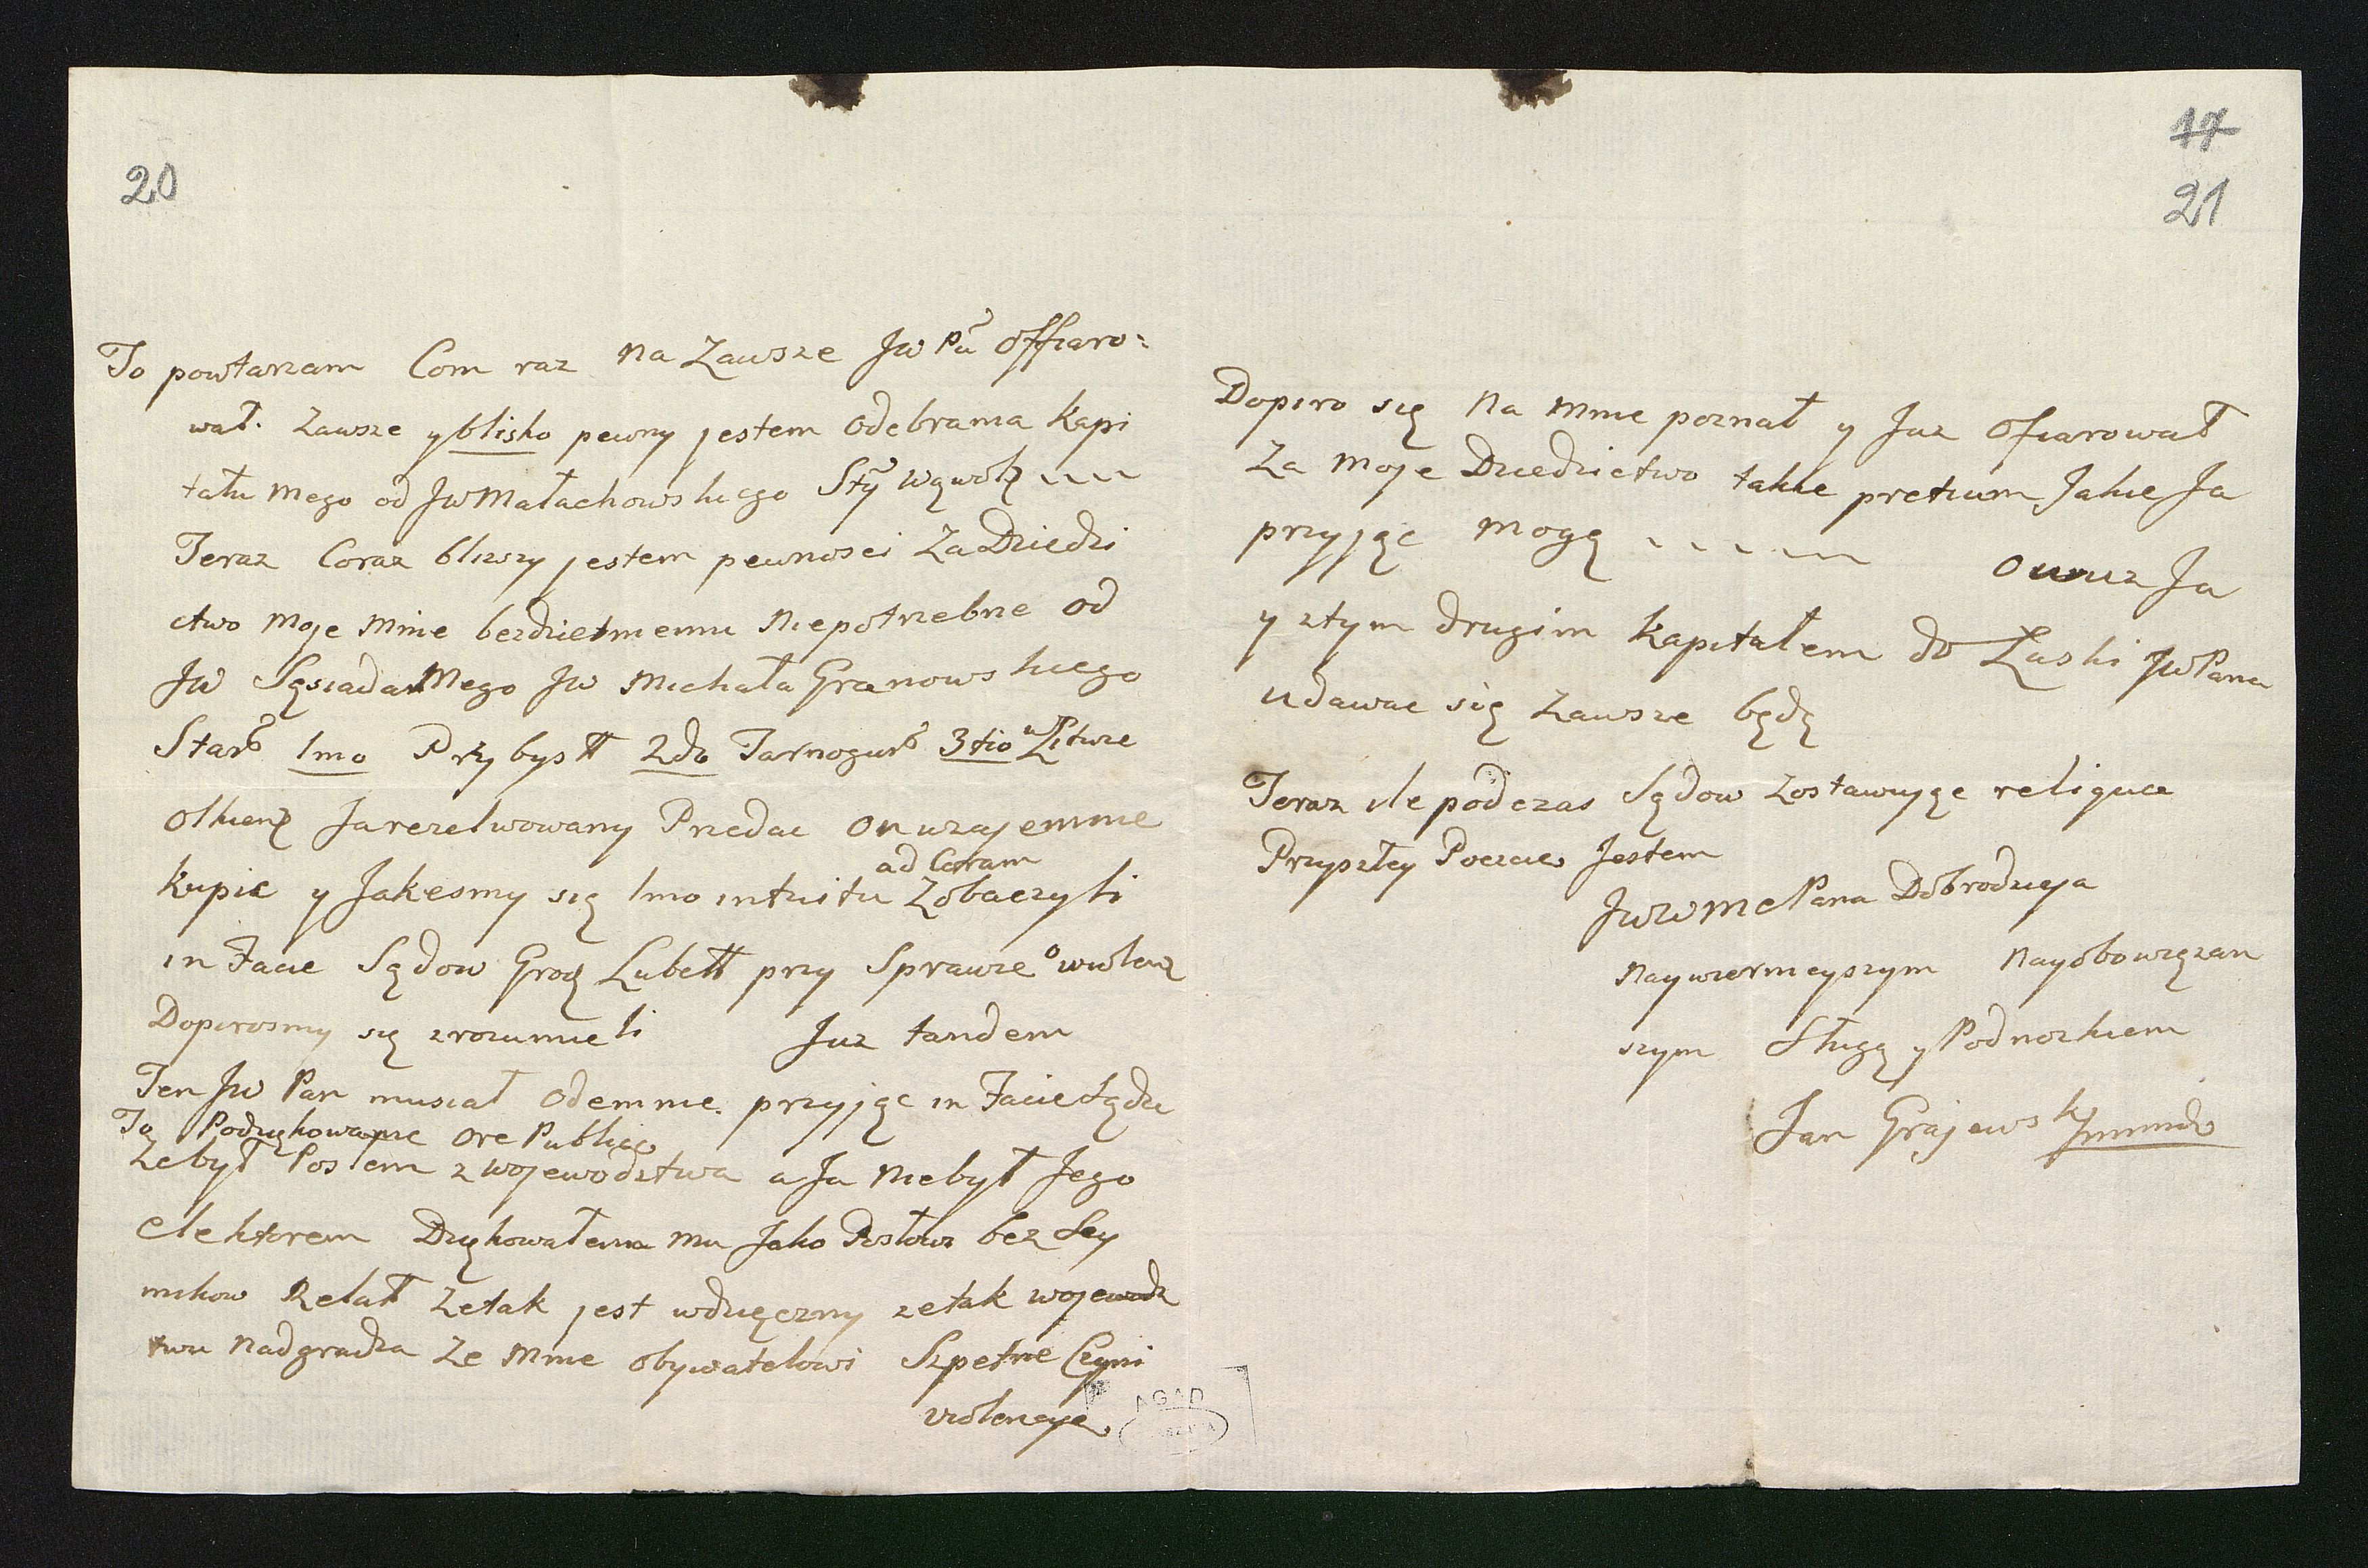 20
To powtarzam Com raz na Zawsze Jw Pũ offiaro=
wał. Zawsze y blisko pewny jestem odebrania Kapi
tału mego od Jw Małachowskiego Sty Wąwolz
Teraz Coraz blizszy jestem pewnosci Za Dziedzi
ctwo moje mnie bezdzietnemu niepotrzebne od
Jw Sąsiada Mego Jw Michała Granowskiego
Star 1mo Przybysł 2do Tarnogur 3tio
Ja rezelwowany Przedac on wzajemnie
ad Coram
kupic y Jakesmy się 1mo intuitu Zobaczyli
in Facie Sądow Grodz Lubell przy Sprawie o wiolenz
Dopirosmy się zrozumieli Juz tandem
Ten Jw Pan musiał odemnie przyjąc in Facie Sądu
To Podziękowanie ore Publico
Ze był Posłem z wojewodztwa a Ja niebył Jego
elektorem Dziękowałem mu Jako Posłowi bez Sey
mikow Ze tak jest wdzięczny ze tak wojewodz
twu nadgradza Ze mnie obywatelowi Szpetne Czyni
violencye
AGAD
17
21
Dopiro się na mnie poznał y Juz ofiarował
Za moje Dziedzictwo takie pretium Jakie Ja
przyjąc mogę
Ja
y ztym drugim kapitałem do Łaski JwPana
udawac się zawsze będę
Teraz ile podczas Sądow zostawując reliquia
Przyszłey Poczcie Jestem
JwWmcPana Dobrodzieja
naywierneyszym nayobowiązan
szym Sługą y Podnozkiem
Jan Grajewski